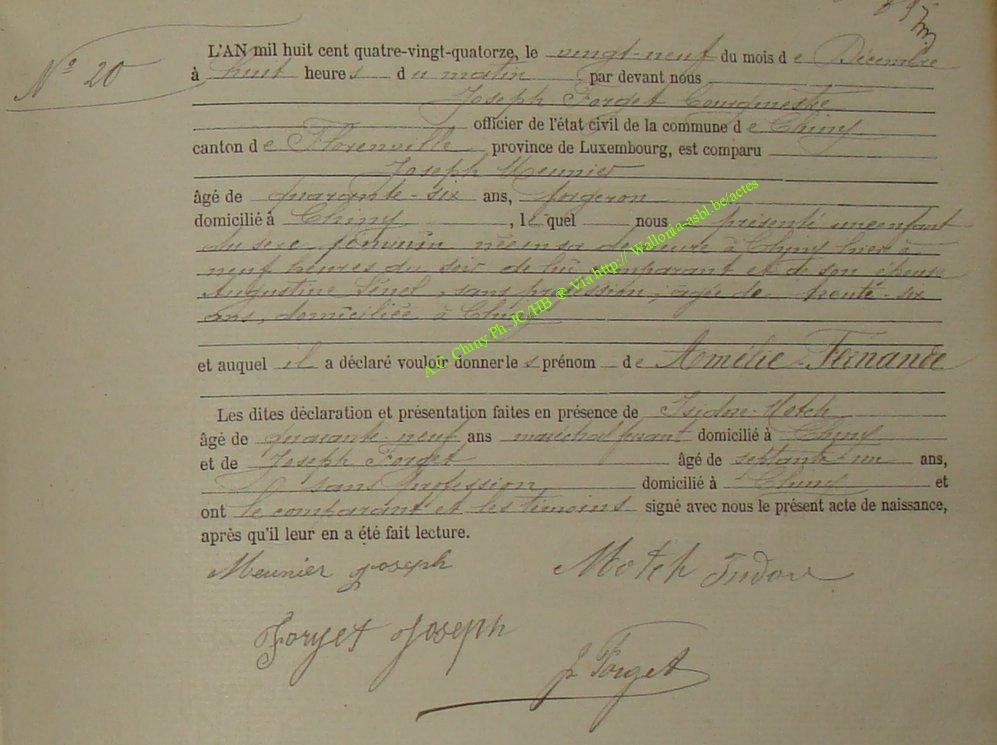 N° 20
L'AN mil huit cent quatre-vingt-quatorze, le vingt-neuf du mois de Décembre
à huit heures du matin par devant nous
Joseph Forget Bourgmestre
officier de l'état civil de la commune de Chiny
canton de Florenville, province de Luxembourg, est comparu
Joseph Meunier
âgé de quarante-six ans, forgeron
domicilié à Chiny, lequel nous présenté un enfant
du sexe féminin né en sa demeure à Chiny hier à
neuf heures du soir de lui comparant et de son épouse
Augustine sans profession, âgée de trente-six
ans, domiciliée à Chiny
et auquel il a déclaré vouloir donner les prénom de Amélie-Fernande
Les dites déclaration et présentation faites en présence de Isidore Motch
âgé de quarante-neuf ans maréchal ferrant domicilié à Chiny
et de Joseph Forget âgé de septante un ans,
sans profession, domicilié à Chiny et
ont le comparant et les témoins signé avec nous le présent acte de naissance,
après qu'il leur en a été fait lecture.
Meunier Joseph Motch Isidore
Forget Joseph
J Forget
A.C. Chiny Ph. JC/HB ® Via http:// Wallonia-asbl.be/actes